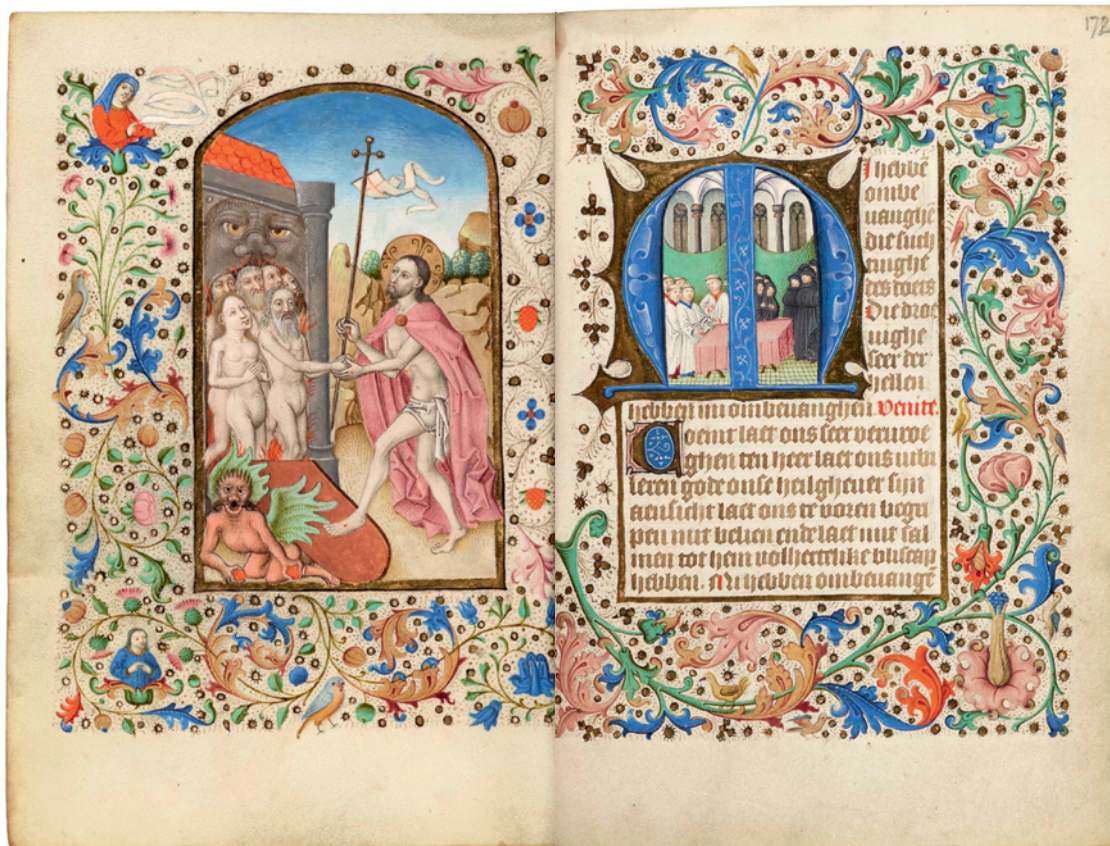 172
MI hebbē
ombe
uanghē
die such
tinghē
des doets
Die droe
uighe
seer der
hellen
hebben mi ombeuanghen. Venite.
Coemt laet ons seer veruroe
ghen ten heer laet ons iubi
leren gode onse heilgheuer sijn
aensicht laet ons te voren begri
pen mit belien ende laet mit sal
men tot hem volhertelike bliscap
hebben. Mi hebben ombeuangē